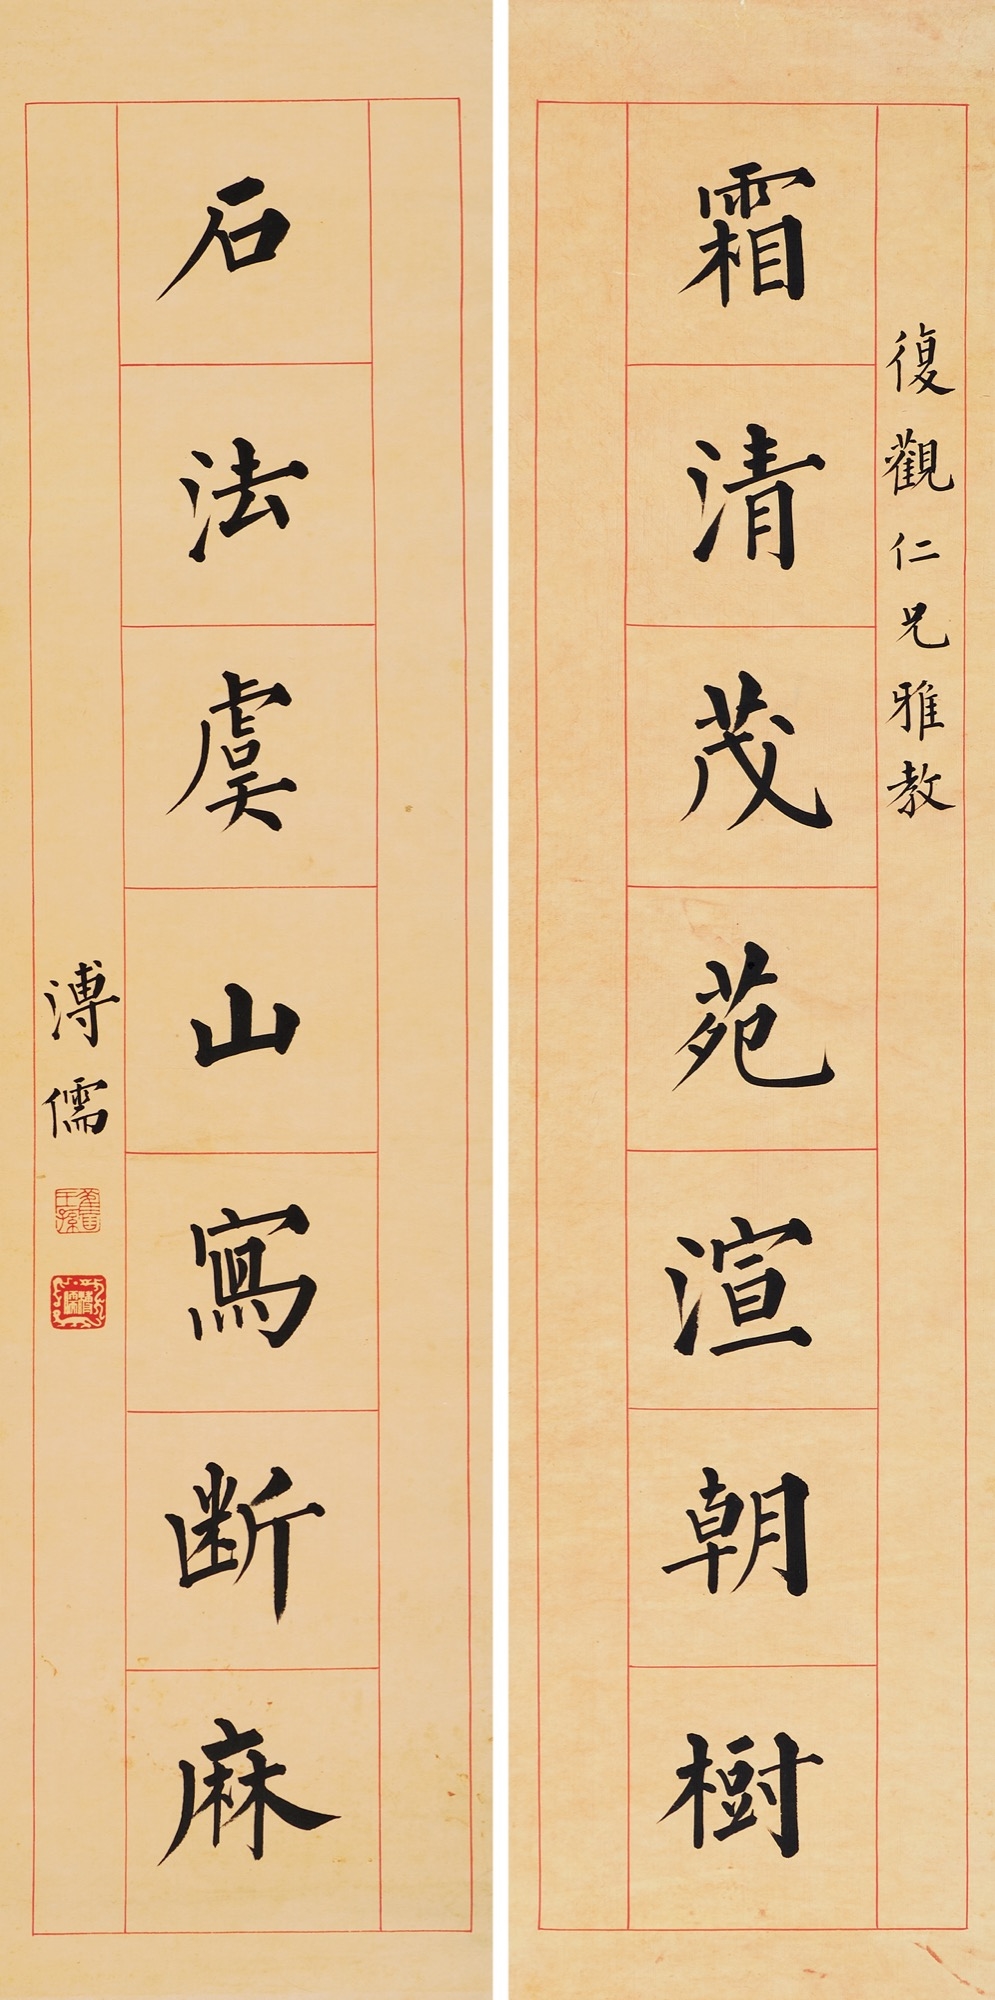 復觀仁兄雅教
霜清茂苑渲朝樹
石法虞山寫断麻
溥儒